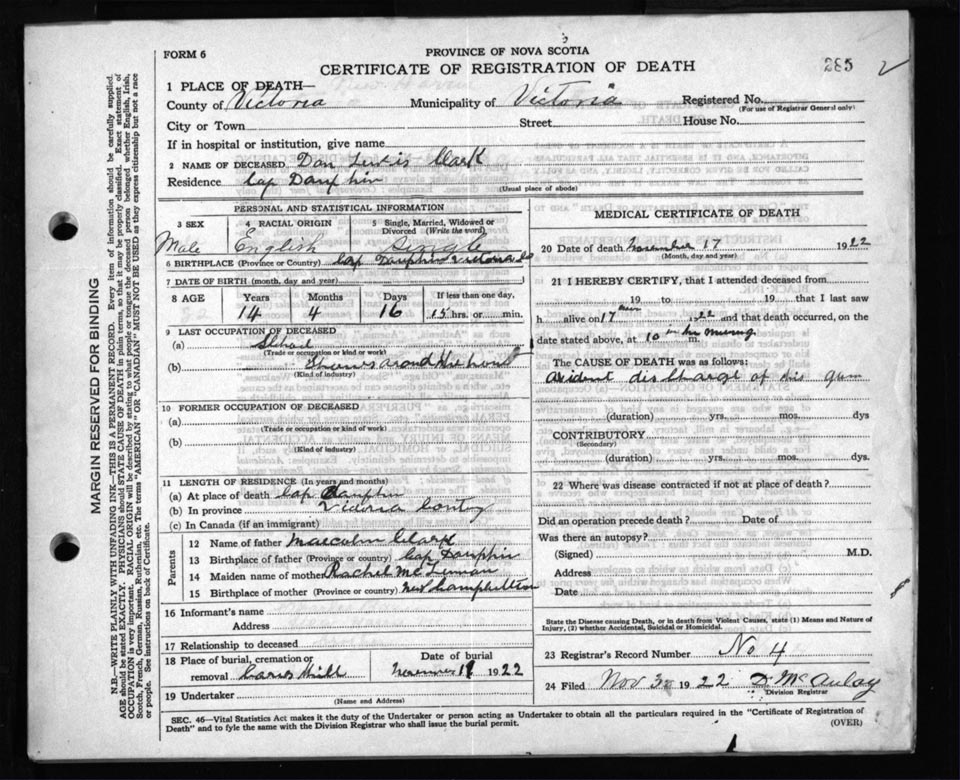 FORM 6
PROVINCE OF NOVA SCOTIA
CERTIFICATE OF REGISTRATION OF DEATH
285
1 PLACE OF DEATH—
County of Victoria Municipality of Victoria Registered No.
(For use of Registrar General only)
City or Town Street House No.
If in hospital or institution, give name
2 NAME OF DECEASED Dan Clark
Residence Cap Dauphin
(Usual place of abode)
PERSONAL AND STATISTICAL INFORMATION
3 SEX 4 RACIAL ORIGIN 5 Single, Married, Widowed or Divorced (Write the word)
Male English Single
6 BIRTHPLACE (Province or Country) Cap Dauphin Victoria
7 DATE OF BIRTH (month, day, and year)
8 AGE Years Months Days If less than one day,
14 4 16 15 hrs. or min.
9 LAST OCCUPATION OF DECEASED
(a)
(Trade or occupation or kind or work)
(b) around the
(Kind of industry)
10 FORMER OCCUPATION OF DECEASED
(a)
(Trade or occupation or kind of work)
(b)
(Kind of industry)
11 LENGTH OF RESIDENCE (In years and months)
(a) At place of death Cap Dauphin
(b) In province Victoria County
(c) In Canada (if an immigrant)
Parents
12 Name of father Malcolm Clark
13 Birthplace of father (Province or country) Cap Dauphin
14 Maiden name of mother Rachel McLennan
15 Birthplace of mother (Province or country) New Campbellton
16 Informant's name
Address
17 Relationship to deceased
18 Place of burial, cremation or removal Date of burial
19 1922
19 Undertaker
(Name and Address)
MEDICAL CERTIFICATE OF DEATH
20 Date of death November 17 1922
(Month, day and year)
21 I HEREBY CERTIFY, that I attended deceased from
19 to 19 that I last saw
h alive on 17 Nov 1922 and that death occurred, on the
date stated above, at 10 in the morning m.
The CAUSE OF DEATH was as follows:
Axident discharge of his gun
(duration) yrs. mos. dys
CONTRIBUTORY
(Secondary)
(duration) yrs. mos. dys
22 Where was disease contracted if not at place of death?
Did an operation precede death? Date of
Was there an autopsy?
(Signed) M.D.
Address
Date
State the Disease causing Death, or in death from Violent Causes, state (1) Means and Nature of Injury, (2) whether Accidental, Suicidal or Homicidal.
23 Registrar's Record Number No 4
24 Filed Nov 30 1922 D McAulay
Division Registrar
SEC. 46—Vital Statistics Act makes it the duty of the Undertaker or person acting as Undertaker to obtain all the particulars required in the "Certificate of Registration of
Death" and to fyle the same with the Division Registrar who shall issue the burial permit.
(OVER)
MARGIN RESERVED FOR BINDING
N.B.—WRITE PLAINLY WITH UNFADING INK—THIS IS A PERMANENT RECORD. Every item of information should be carefully supplied.
AGE should be stated EXACTLY. PHYSICIANS should STATE CAUSE OF DEATH in plain terms, so that it may be properly classified. Exact statement of
OCCUPATION is very important. RACIAL ORIGIN will be described by stating to what people or tongue the deceased person belonged whether English, Irish,
Scotch, French, German, Russian, Ruthenian, etc. The terms "AMERICAN" or "CANADIAN" MUST NOT BE USED as they express citizenship but not a race
or people. See instructions on back of Certificate.